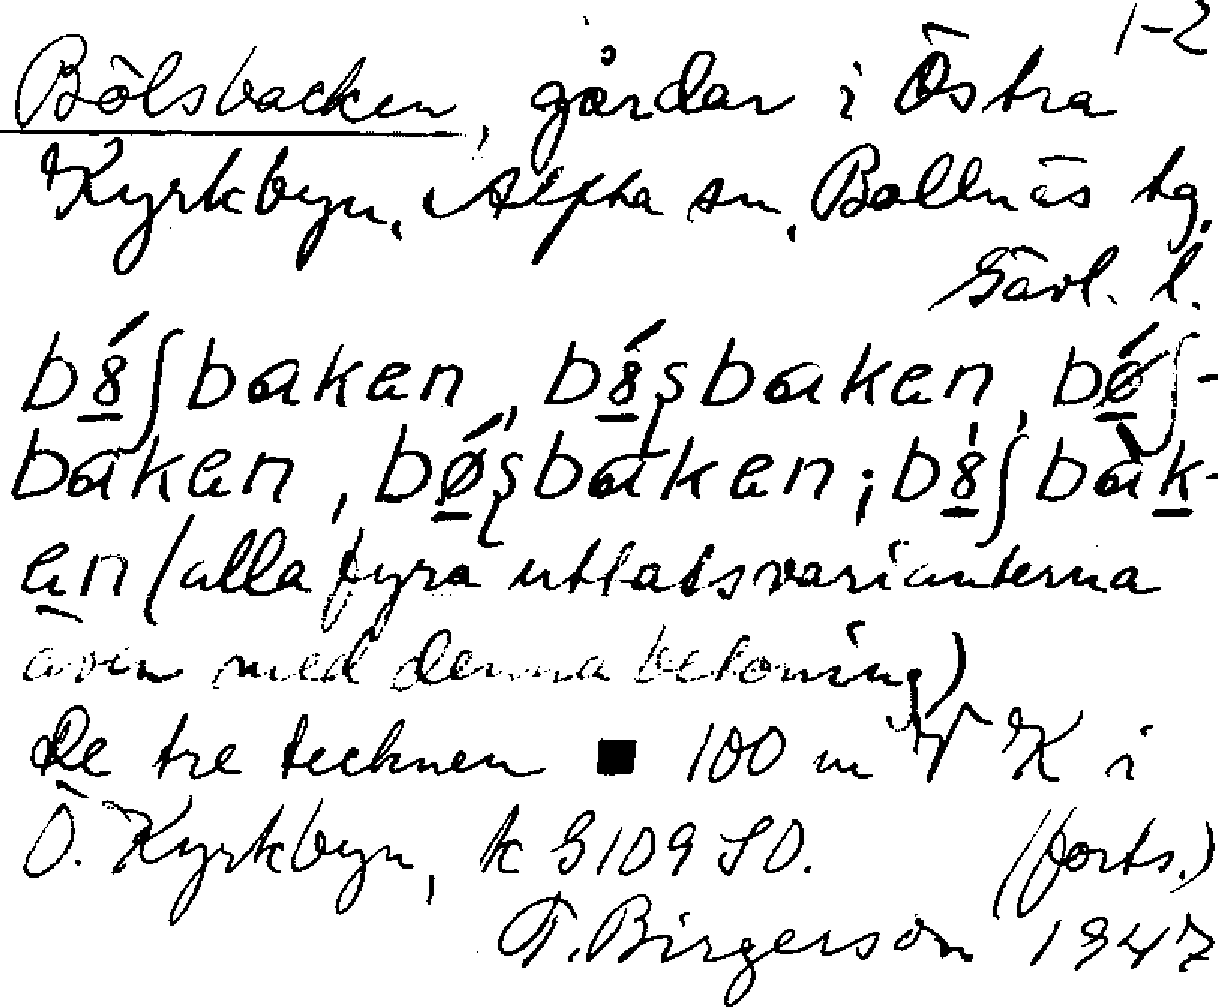 1-2
Bölsbacken, gårdar i Östra
Kyrkbyn, Alfta sn, Bollnäs tg.
Gävl. l.
bȣ́ʃbakən, bȣ́ʂbakən, bǿʃ-
bakən, bǿʂbakən; bȣ́ʃbàk-
ən (alla fyra uttalsvarianterna
även med denna betoning)
De tre tecknen ■ 100 m V K i
Ö. Kyrkbyn, k 9109 SO. (forts.)
T. Birgerson 1947